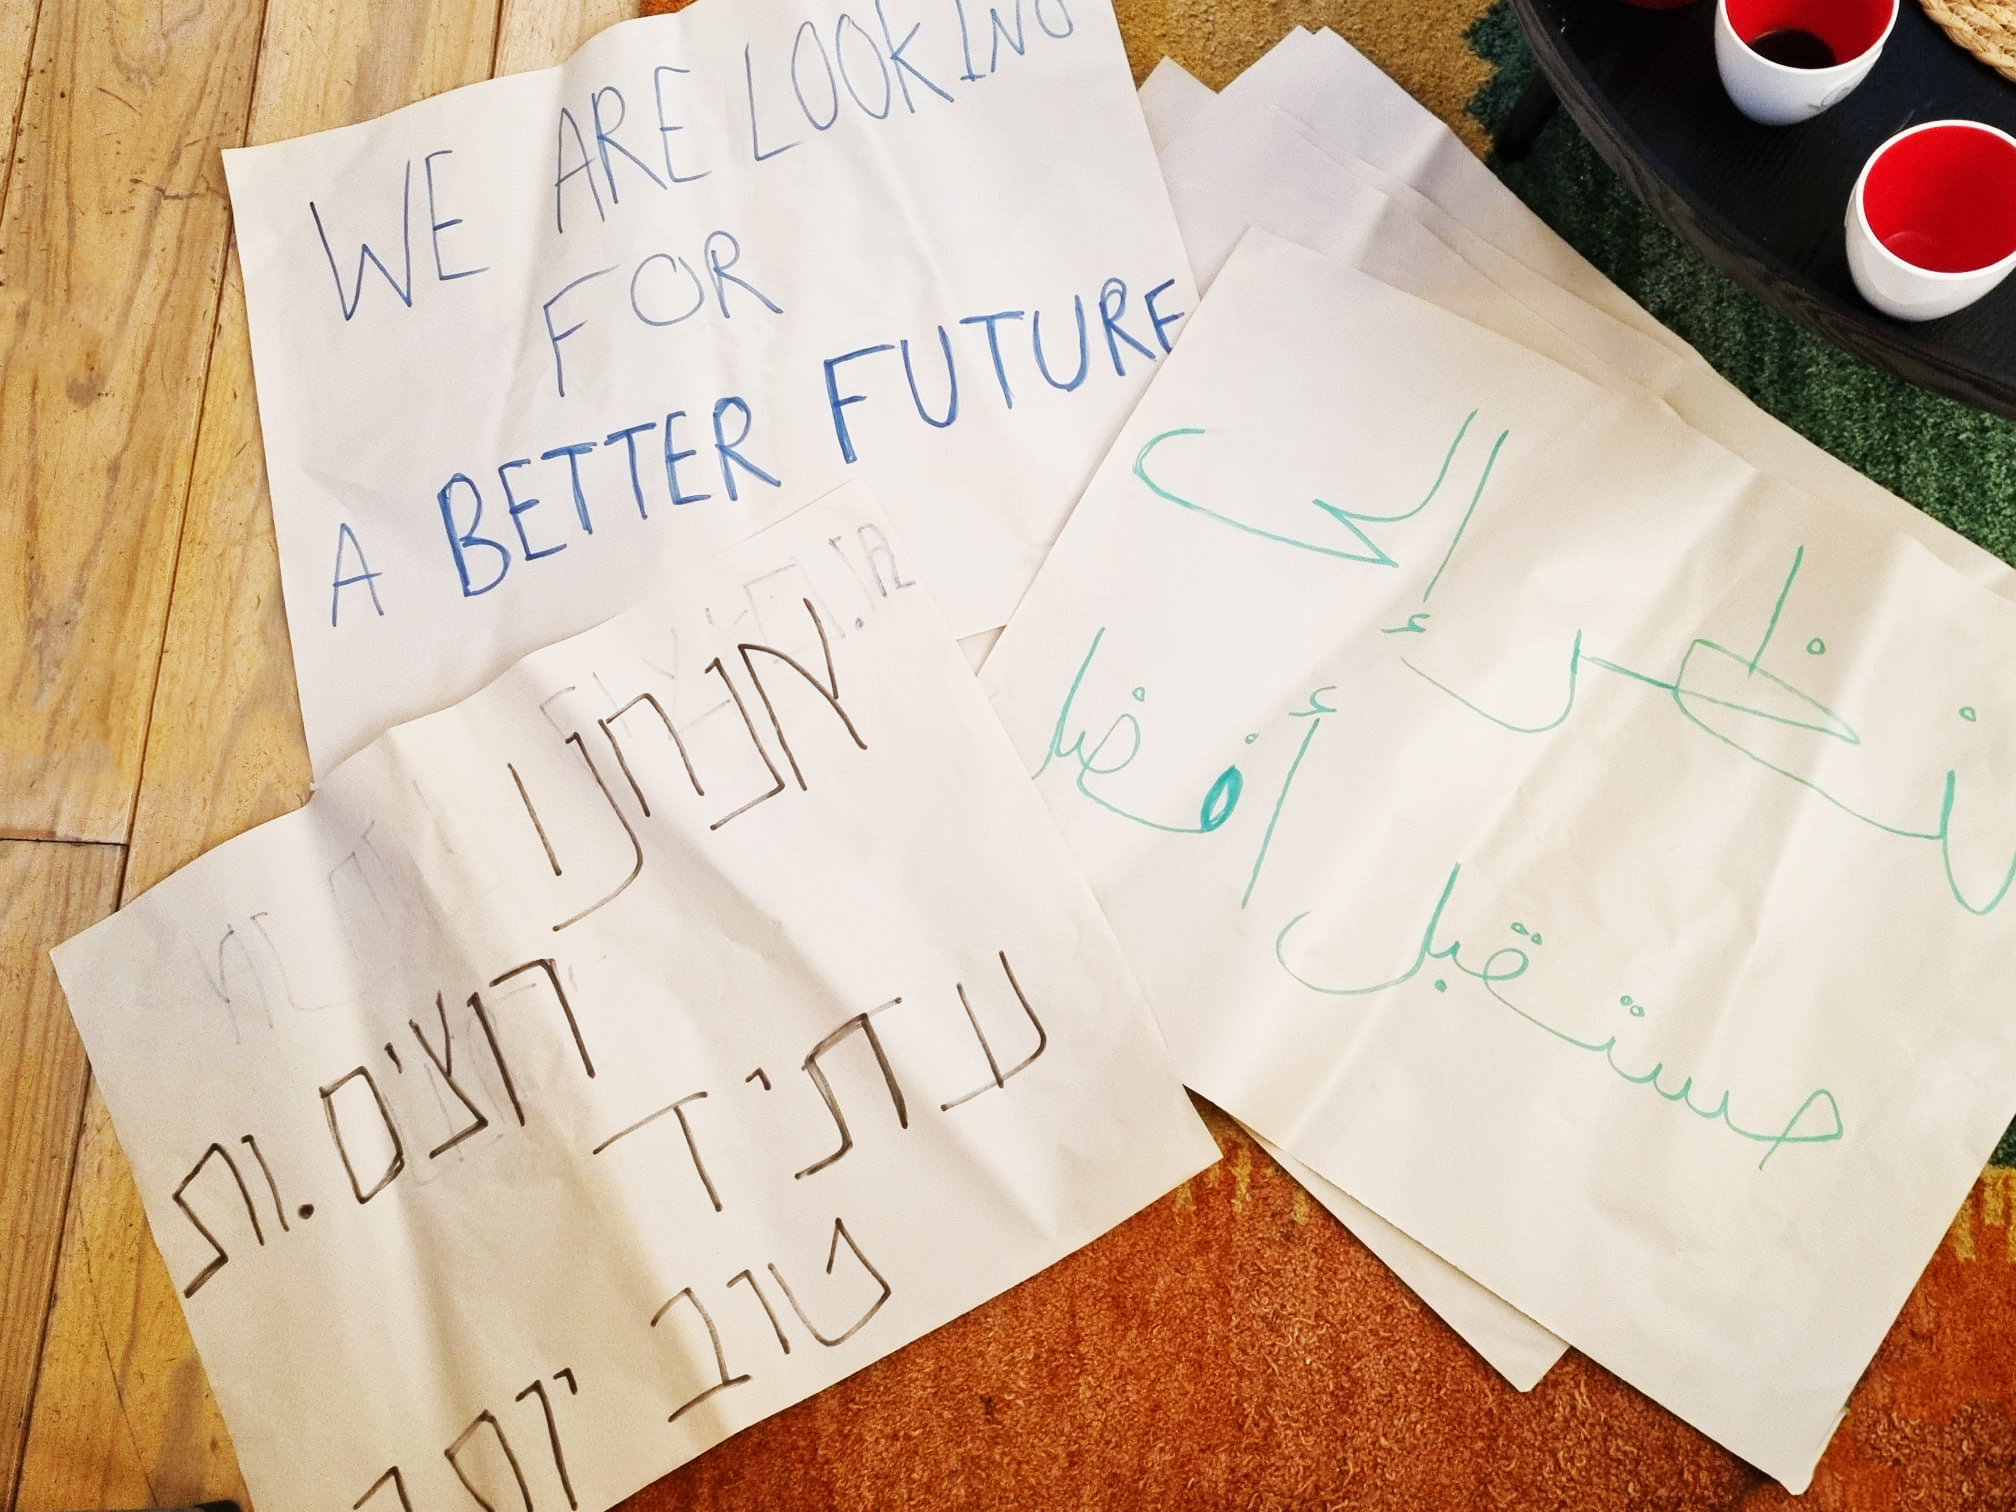 WE ARE LOOKING
FOR
A BETTER FUTURE
אנחנו
רוצים.ות
עתיד
טוב יותר
لننظر إلى
مستقبل أفضل